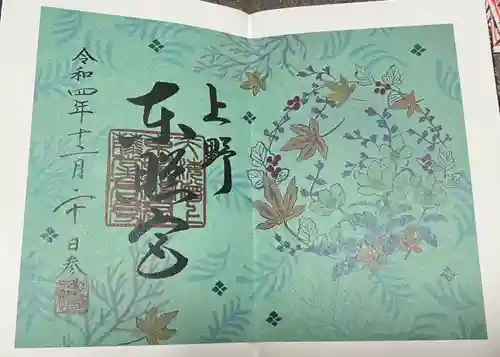 上野
東照宮
令和四年十二月二十日参